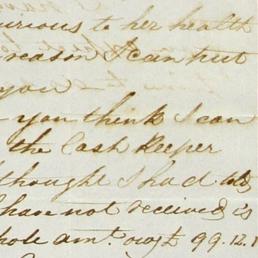 urious to her health
reason I can put
you
you think I can
the Cash Keeper
thought I had
have not received is
hole amt. owg £ 99.12.1